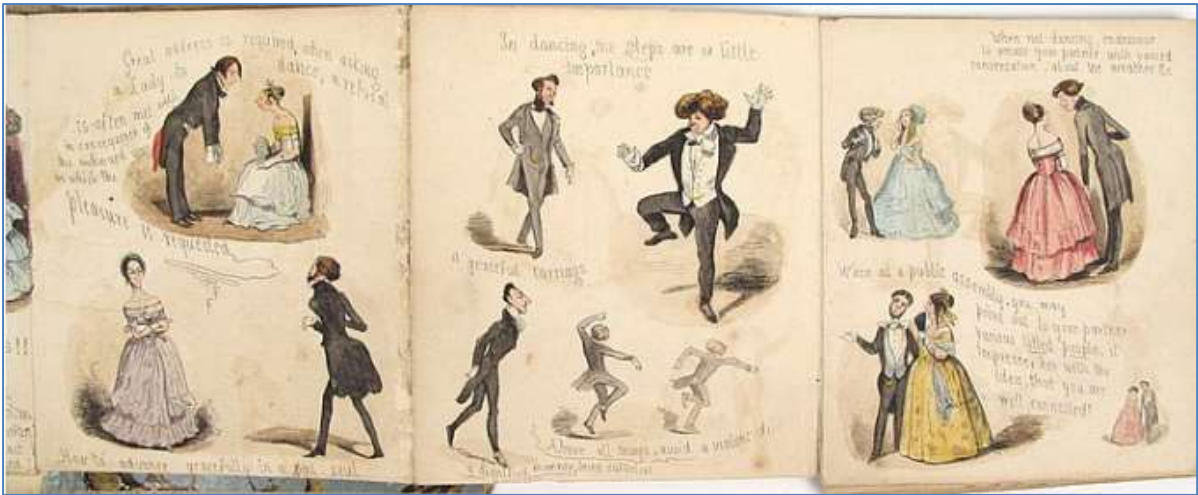 Great address is required, when asking
a Lady to dance, a refusal
is often met with
in consequence of
the awkward
in which the
pleasure is requested
How to advance gracefully in a pas seul
In dancing, the steps are of little
importance
a graceful carriage
Above all things, avoid a violent
When not dancing, endeavour
to amuse your partner with varied
conversation, about the weather &c
When at a public assembly, you may
point out to your partner
various titled people, it
impresses her with the
idea, that you are
well connected!